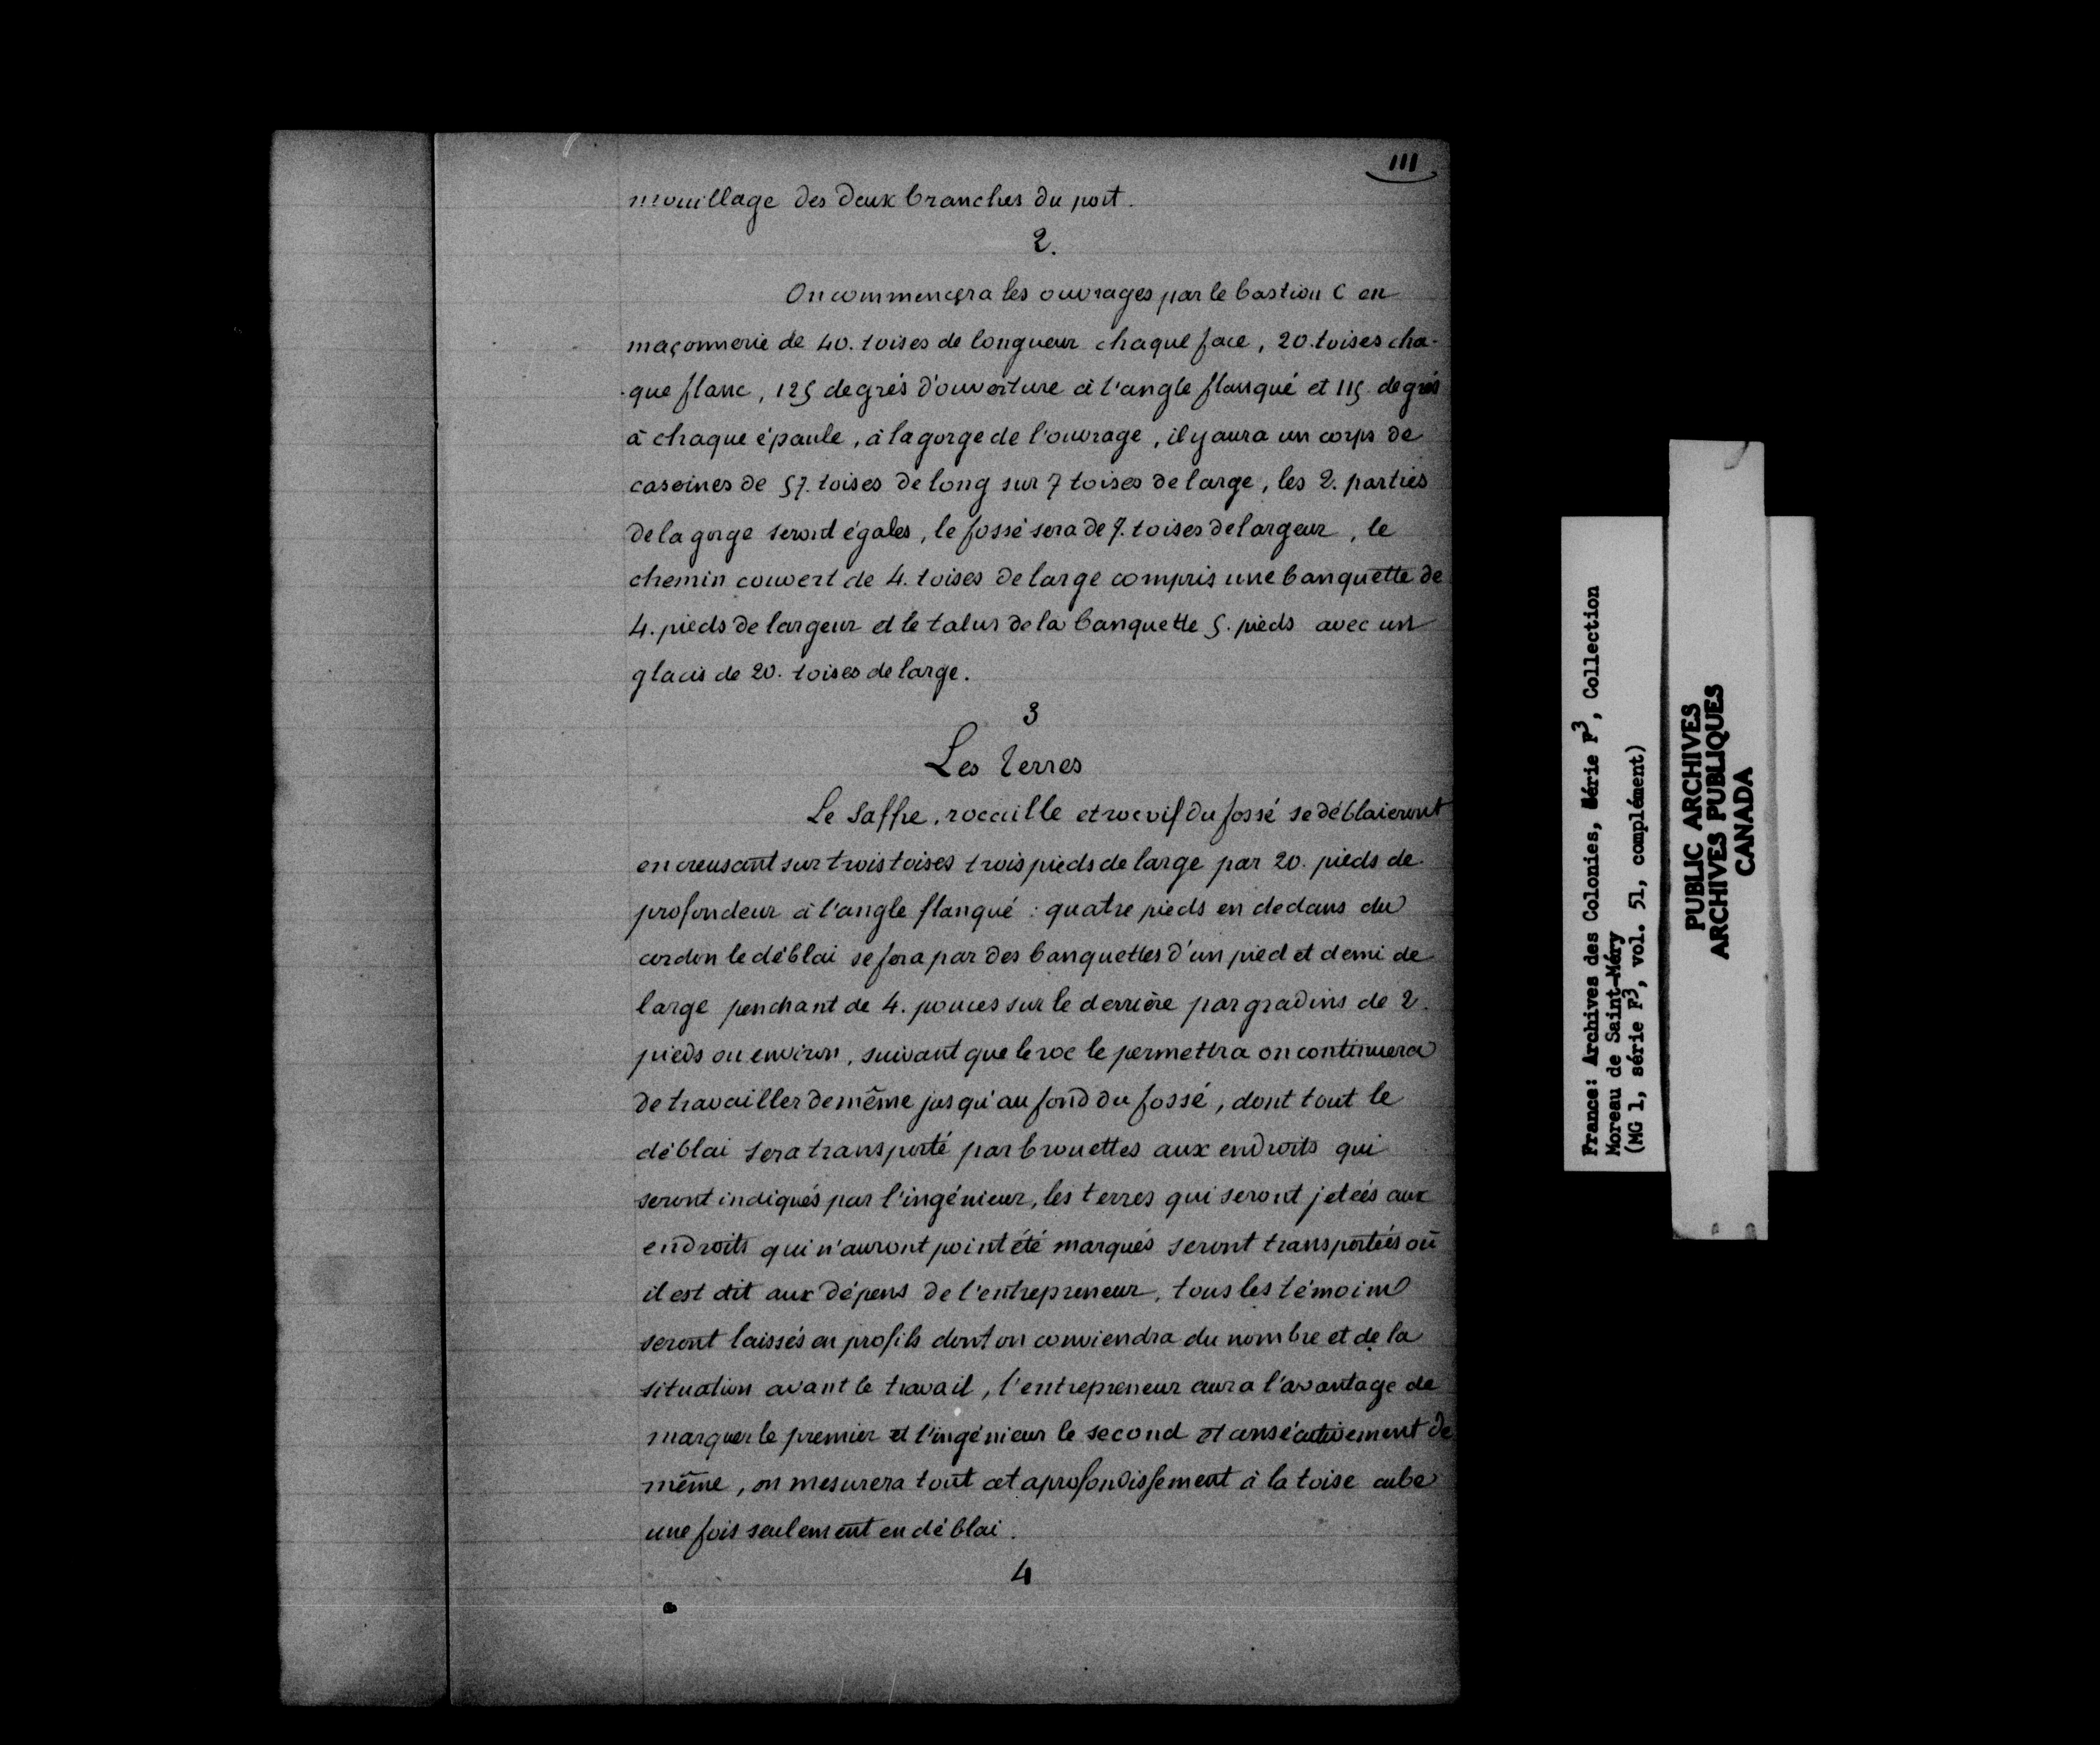 111
mouillage des deux branches du port.
2.
On commencera les ouvrages par le bastion C en
maçonnerie de 40. toises de longueur chaque face, 20. toises cha-
-que flanc, 125 degrés d'ouverture à l'angle flanqué et 115 degrés
à chaque épaule, à la gorge de l'ouvrage, il y aura un corps de
casernes de 57. toises de long sur 7 toises de large, les 2. parties
de la gorge seront égales, le fossé sera de 7. toises de largeur, le
chemin couvert de 4. toises de large compris une banquette de
4. pieds de largeur et le talus de la banquette 5. pieds avec un
glacis de 20. toises de large.
3
Les Terres
Le Saffre, rocaille et roc vif du fossé se déblaieront
en creusant sur trois toises trois pieds de large par 20. pieds de
profondeur à l'angle flanqué : quatre pieds en dedans du
cordon le déblai se fera par des banquettes d'un pied et demi de
large penchant de 4. pouces sur le derrière par gradins de 2.
pieds ou environ, suivant que le roc le permettra on continuera
de travailler de même jusqu'au fond du fossé, dont tout le
déblai sera transporté par brouettes aux endroits qui
seront indiqués par l'ingénieur, les terres qui seront jetées aux
endroits qui n'auront point été marqués seront transportées où
il est dit aux dépens de l'entrepreneur, tous les témoins
seront laissés en profils dont on conviendra du nombre et de la
situation avant le travail, l'entrepreneur aura l'avantage de
marquer le premier et l'ingénieur le second et consécutivement de
même, on mesurera tout cet aprofondissement à la toise cube
une fois seulement en déblai.
4
France: Archives des Colonies, Série F3, Collection
Moreau de Saint-Méry
(MG 1, série F3, vol. 51, complément)
PUBLIC ARCHIVES
ARCHIVES PUBLIQUES
CANADA